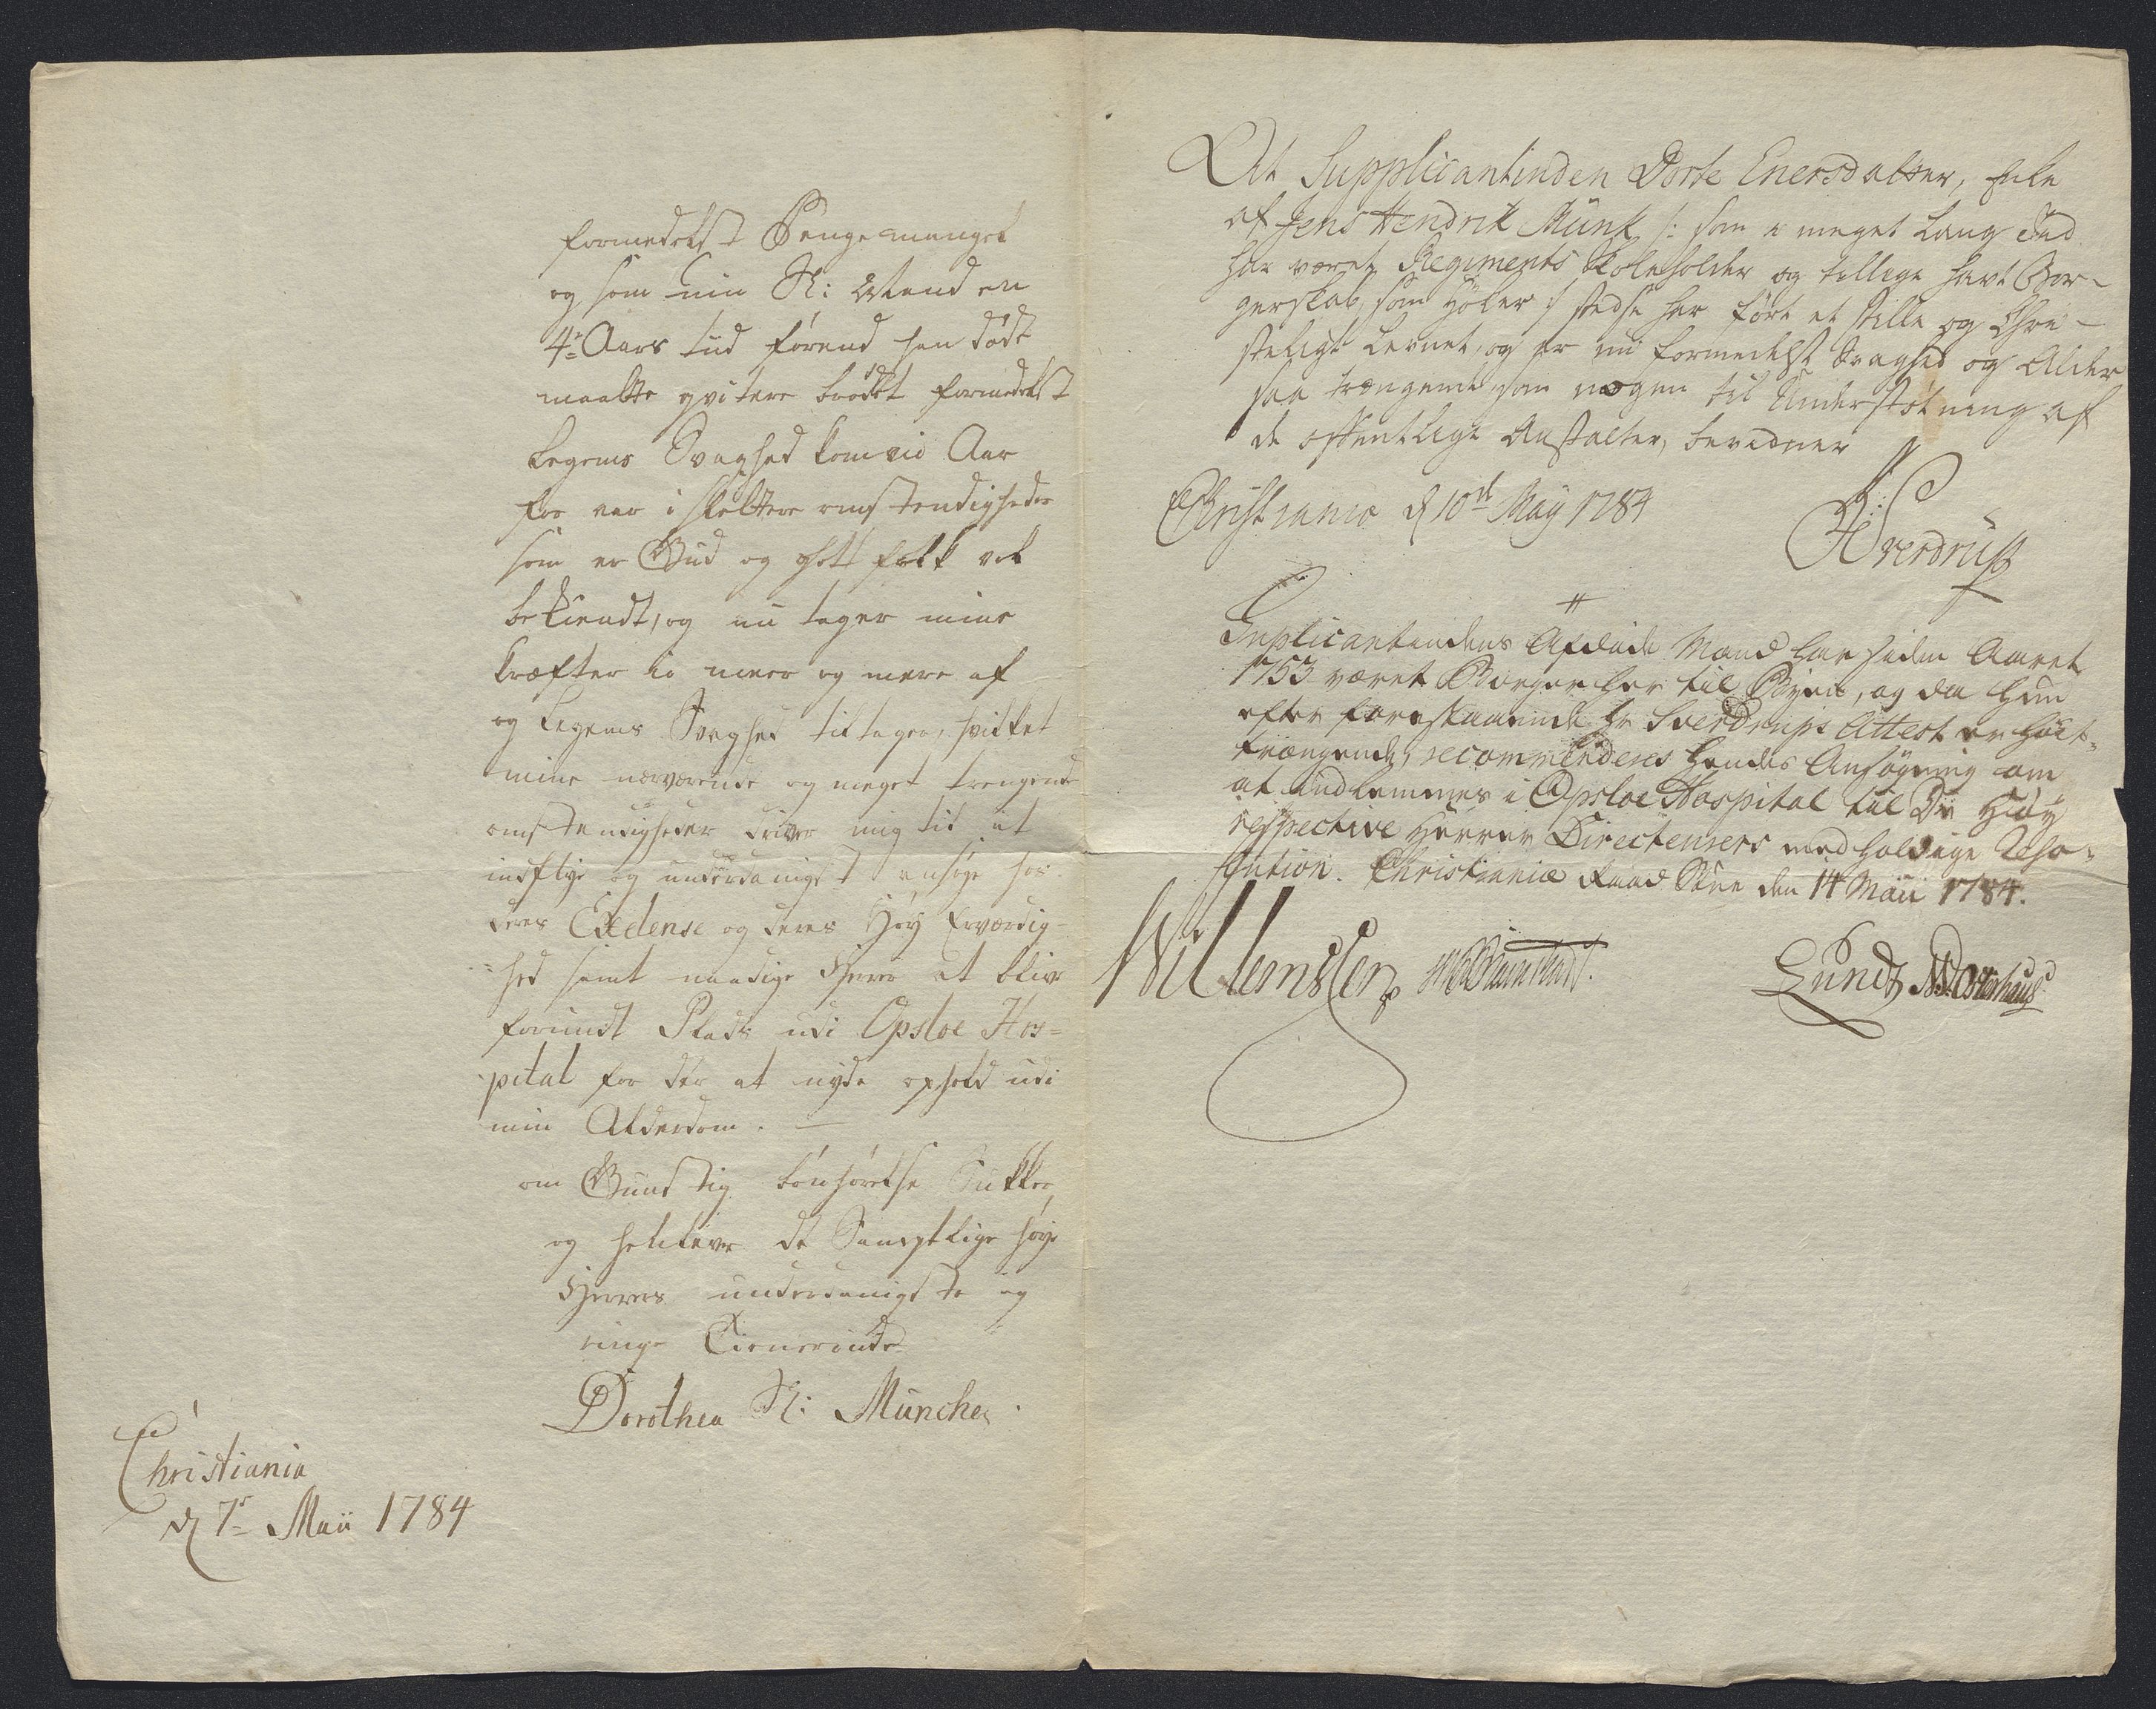 formedelst Penge mangel
og som min Sl: Mand en
4re Aars tid førend han døde
maatte qvitere brødet formedelst
Legems Svaghed kom vid Aar
for var i slettere omstendigheder
som er Gud og godt folk vel
bekiendt, og nu tager mine
kræfter io meer og mere af
og Legems Svaghed tiltager, hvilket
mine nærværende og meget trengende
omstendigheder driver mig til at
indflye og underdanigst ansøge hos
deres Exelense og deres Høy Ærværdig-
=hed samt naadige Herrer at blive
forundt Plads udi Opsloe Hos=
pital for der at nyde ophold udi
min Alderdom. —
om Gunstig bønhørelse Sukker
og henlever de Samptlige høye
Herrers underdanigste og
ringe Tienerinde
Dorothea Sl: Münches
Christiania
d 7de Maii 1784
At Supplicantinden Dorte Enersdatter, Enke
af Jens Hendrik Münk /: som i meget lang Tid
har været Regiments Skoleholder og tillige havt Bor-
gerskab som Høker :/ stedse har ført et stille og Chri-
steligt Levnet, og er nu formedelst Svaghed og Alder
saa trængende som nogen til Understøtning af
de offentlige Anstalter, bevidner
Christiania d 10de May 1784
Sverdrup
Suplicantindens Afdøde Mand har siden Aaret
1753 været Borger her til Byen, og da hun
efter forestaaende Hr Sverdrups Attest er høit-
trængende, recommenderes hendes Ansøgning om
at indlemmes i Opsloe Hospital til De Høy
respective Herrer Directeurers medholdige Reso-
lution. Christiania Raad Stue den 14 Maii 1784.
Willemssen
Lundt N. Osterhaus